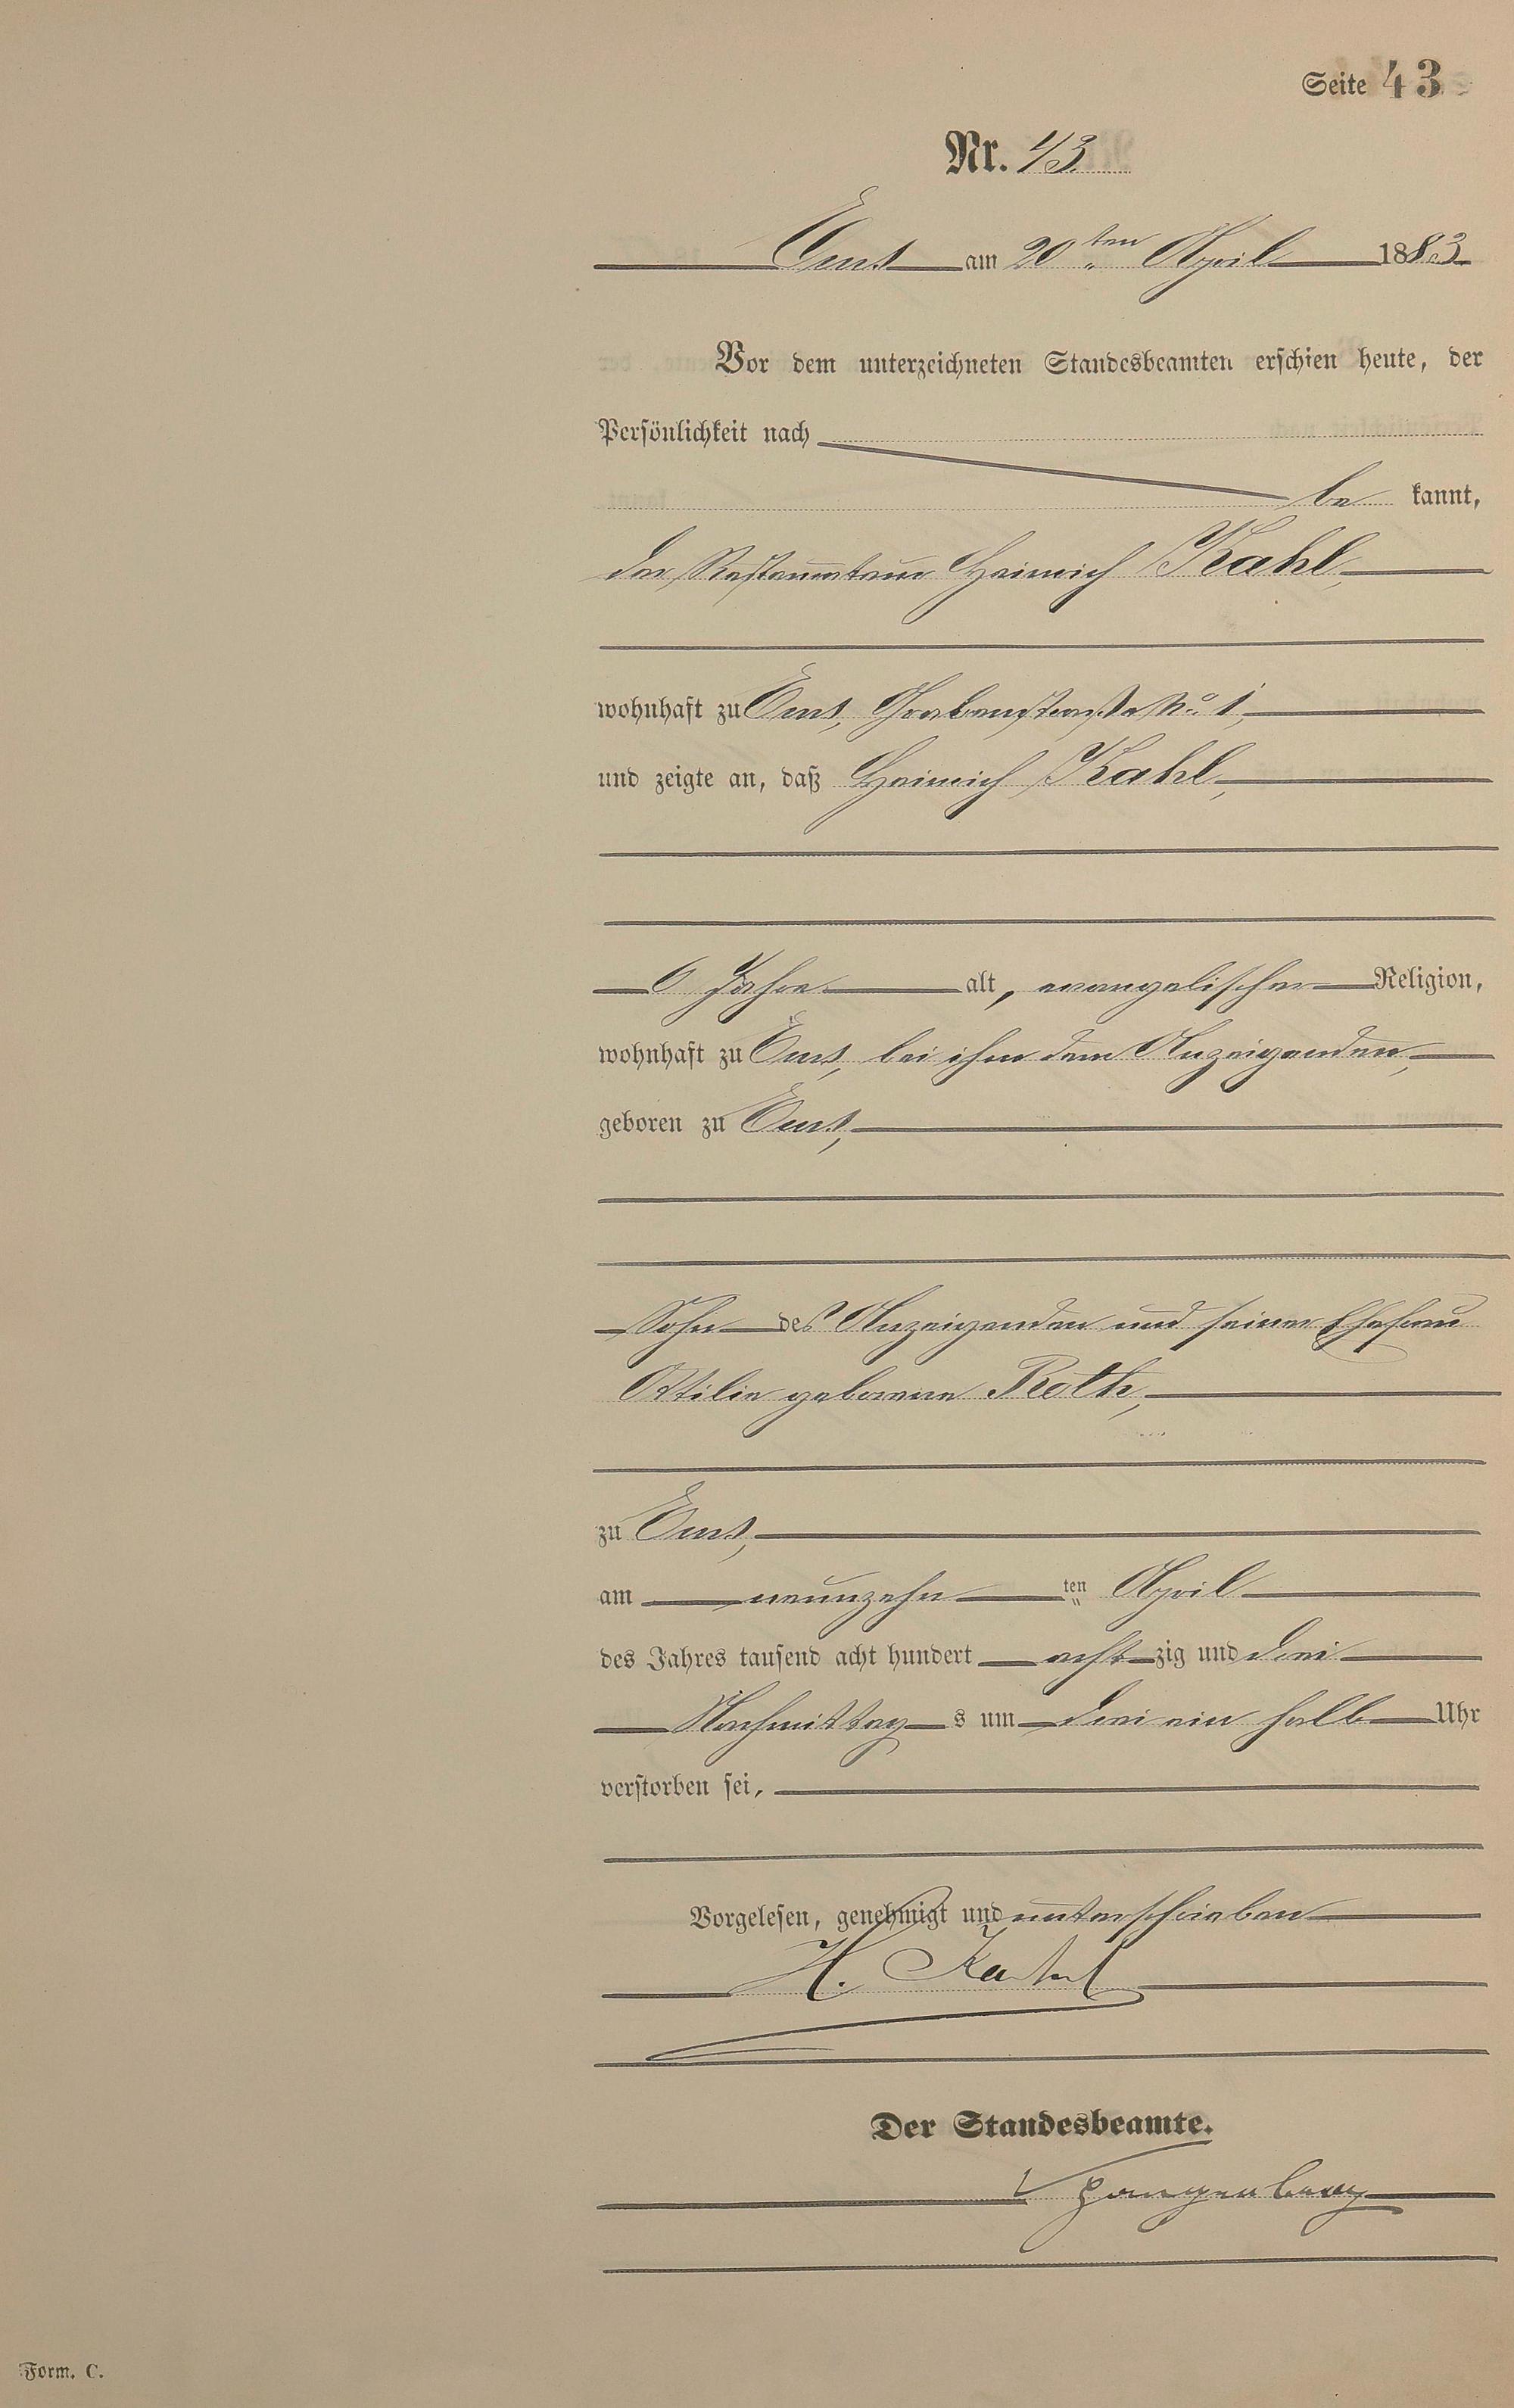 Seite 43
Nr. 43.
Ems am 20ten April 1883
Vor dem unterzeichneten Standesbeamten erschien heute, der
Persönlichkeit nach
be kannt,
der Restaurateur Heinrich Kahl,
wohnhaft zu Ems, Grabenstraße No 1,
und zeigte an, daß Heinrich Kahl,
6 Jahre alt, evangelischer Religion,
wohnhaft zu Ems, bei ihm dem Anzeigenden,
geboren zu Ems,
Sohn des Anzeigenden und seiner Ehefrau
Ottilie geborene Roth,
zu Ems,
am neunzehn ten April
des Jahres tausend acht hundert acht zig und drei
Nachmittag s um drei ein halb Uhr
verstorben sei,
Vorgelesen, genehmigt und unterschrieben
H. Kahl
Der Standesbeamte.
Spangenberg
Form. C.